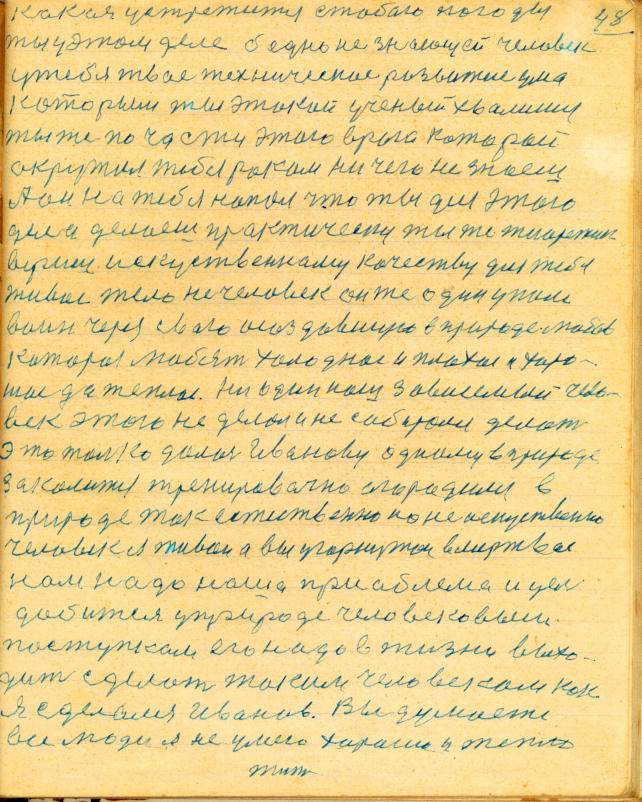 48
какая устретится с тобою погоды
ты у этом деле бедно не знающей человек
у тебя твое техническое розвитие ума
которым ты этакой ученый хвалишся
ты же по части этого врага которой
окружил тебя роком ничего не знаеш
А он на тебя напал что ты для этого
дела делаеш практически ты же
вериш искуственному качеству для тебя
живое тело не человек он же один упал
воин через свого оказавшиюся в природе любов
которая любят холодное и плохое и харо-
шое да теплое. Ни один нош зависемый чело-
век этого не делал и не собирался делат
Это только далося Иванову одному в природе
закалится тренировачно
природе так естественно но не искуственно
человек я живой а вы угорнутои в мертвое
нам надо наша приаблема и цел
добится у природе человековыем
поступкам его надо в жизни выхо-
дит сделат таким человеком как
я сделался Иванов. Вы думаете
все люди я не умею харашо и тепло
жит